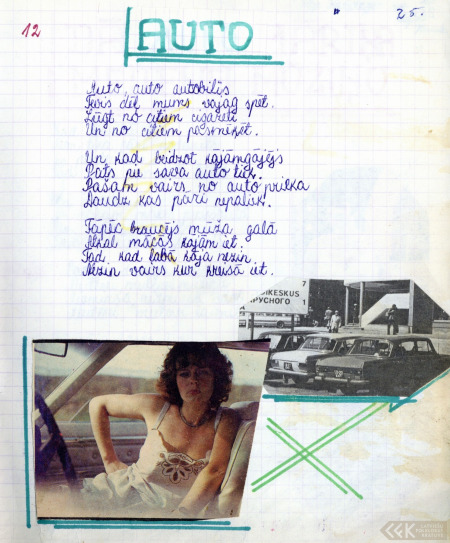 12
25.
AUTO
Auto, auto autobilis
Tevis dēļ mums vajag spēt.
Lūgt no citiem cigareti
Un no citiem pasmēķēt.
Un kad beidzot kājāmgājējs
Pats pie sava auto tiek.
Pašam vairs no auto prieka
Daudz kas pāri nepaliek.
Tāpēc braucējs mūža galā
Atkal mācās kājām iet.
Tad, kad labā kāja nezin
Nezin vairs kur kreisā iet.
7
IKESKUS
РУСНОГО 1
LATVIEŠU
FOLKLORAS
KRĀTUVE